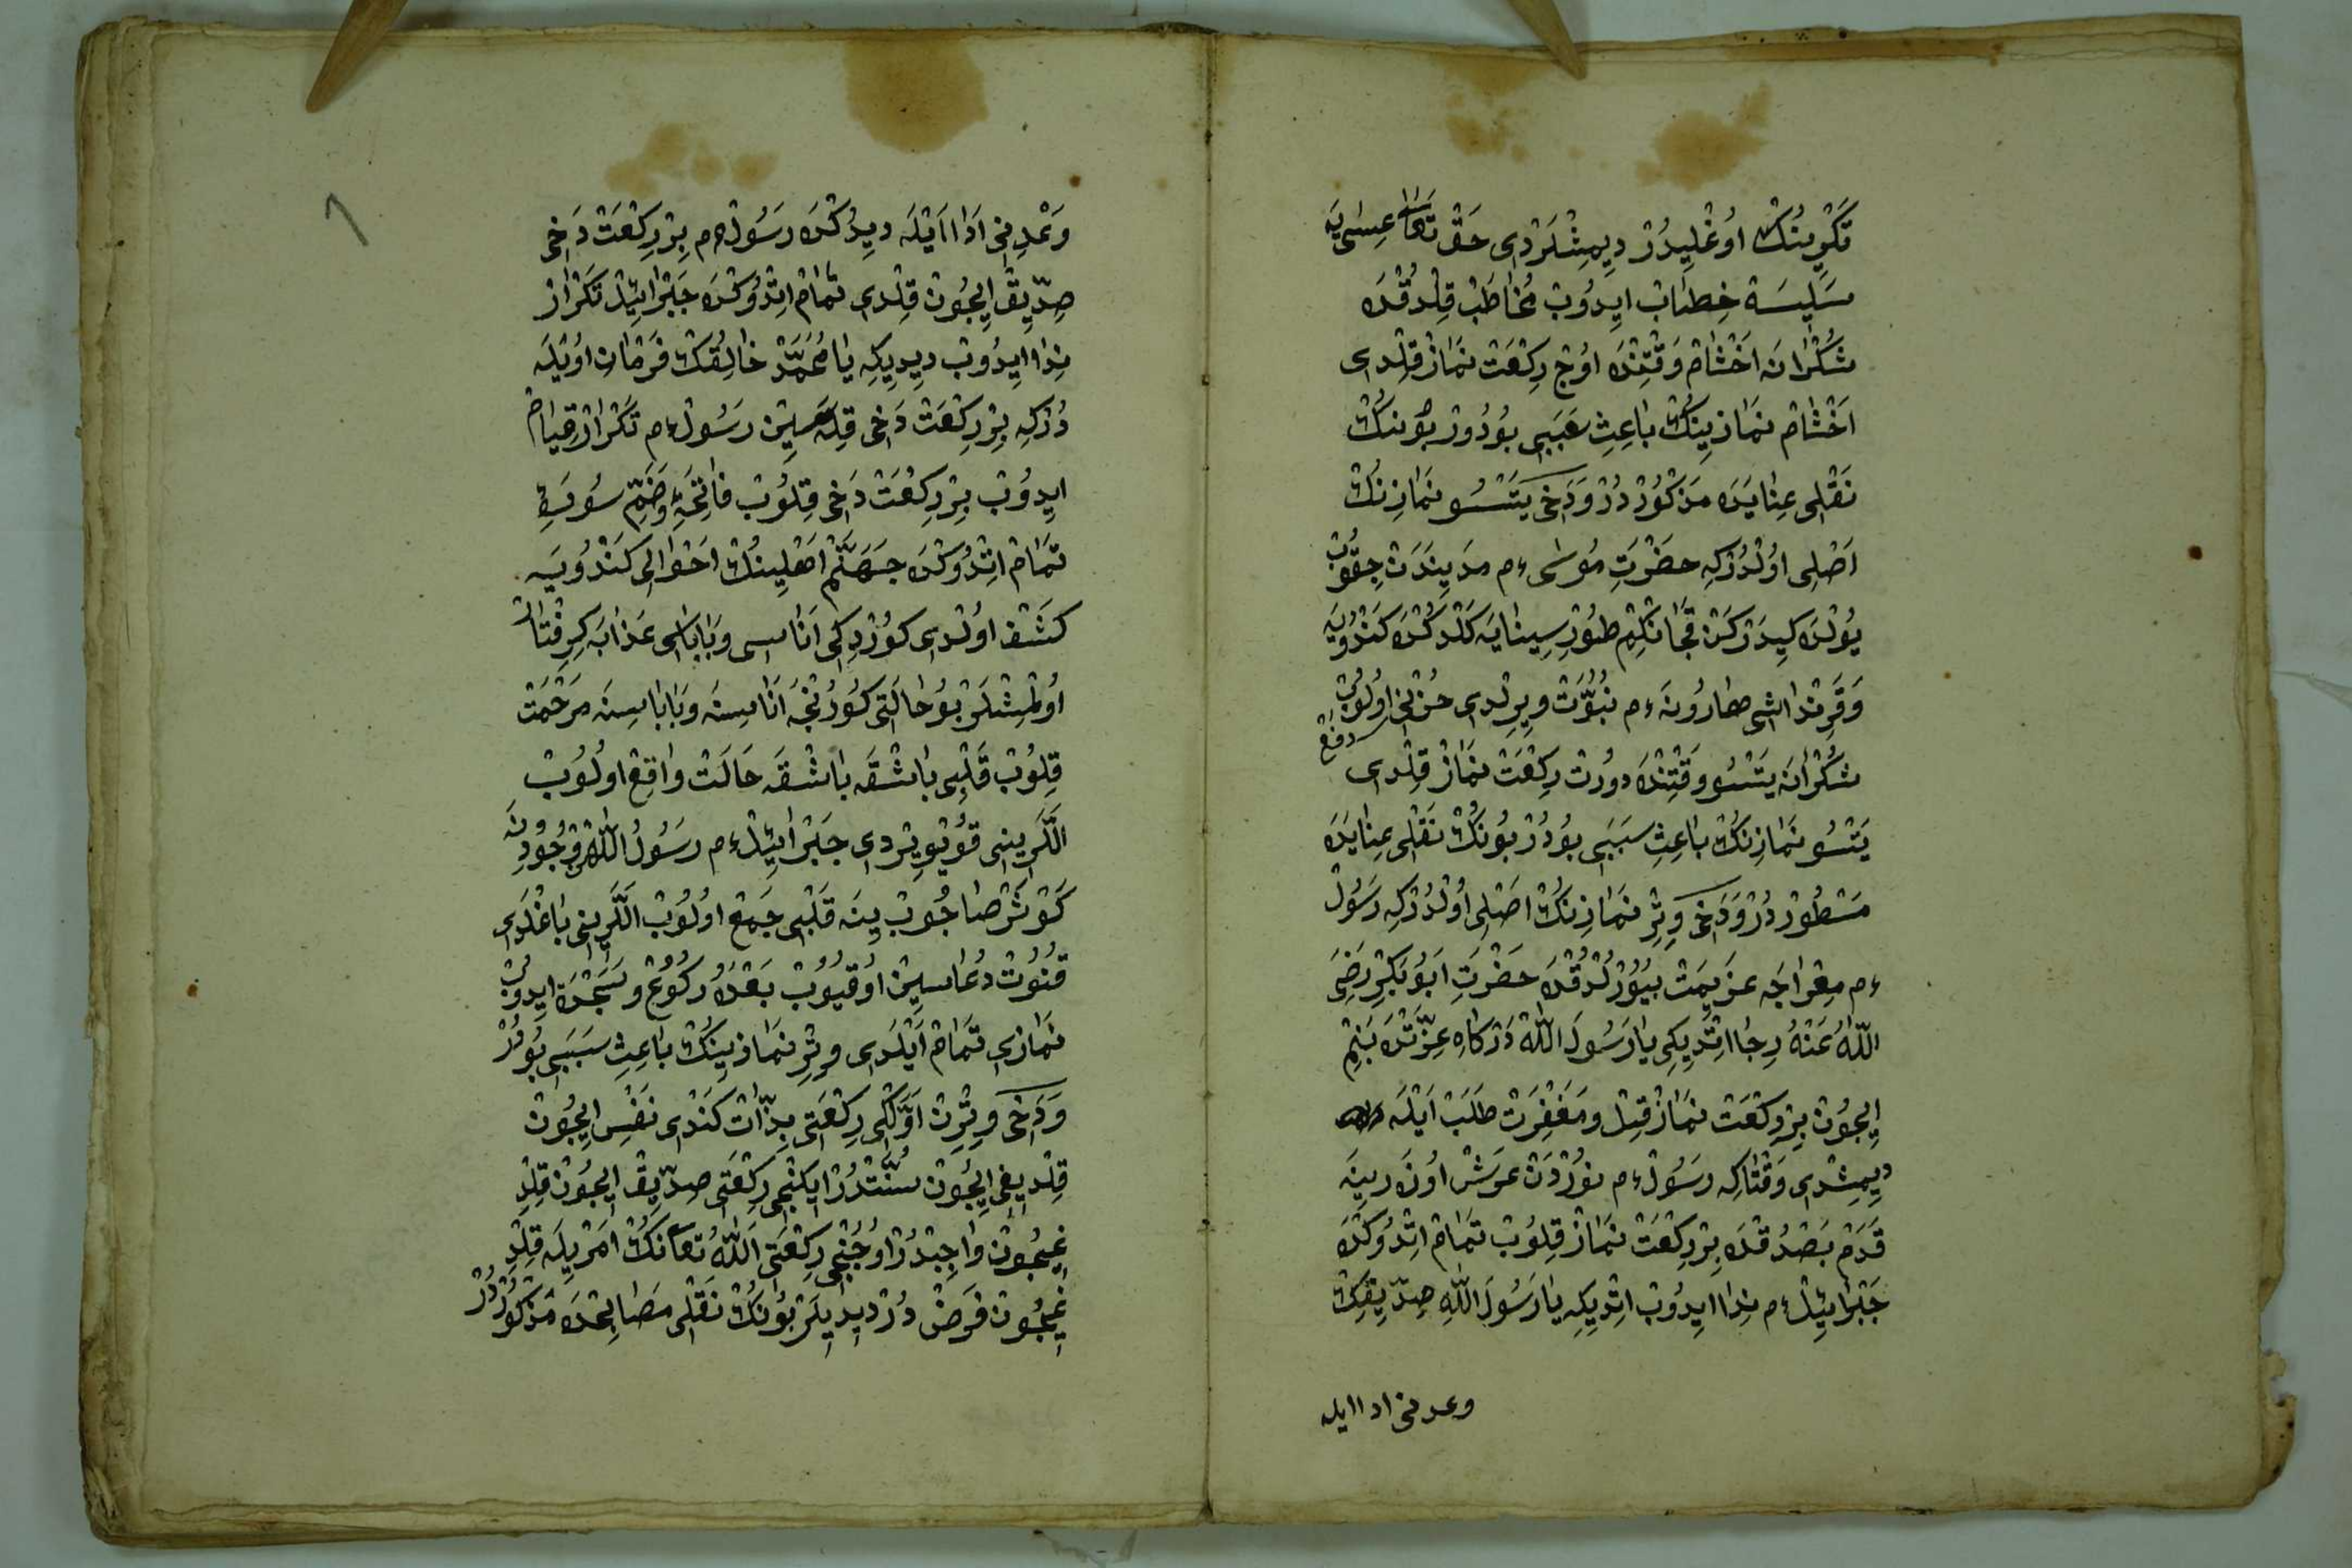 تَكْرِينُكْ اوُغْلِيدُرْ دِيمِشْلَرْدِى حَقْ تَعَالٰى عِيسٰى يَه
سَلِيسَة خِطَابْ ايِدُوبْ مُخَاطَبْ قِلْدُقْدَه
شُكْرَانَه اَخْشَامْ وَقْتِنْدَه اوُچْ رِكْعَتْ نَمَازْ قِلْدِى
اَخْشَامْ نَمَازِينِكْ بَاعِثِ سَبَبِى بُودُورْ بُونِنكْ
نَقْلِى عِنَايَدَه مَذْكُورْ دُرْ وَدَخِى يَتْسُو نَمَازِنكْ
اَصْلِى اوُلْدُرْكِه حَضْرَتِ مُوسٰى ءم مَدَيِنْدَنْ چِقُوبْ
يُولْدَه كِيدَرْكَنْ قَچَانْكِمْ طُورِ سِينَايَه كَلْدُكْدَه كَنْدُويَه
وَقَرِنْدَاشِى هَارُونَه ءم نُبُوَّتْ وِيرِلْدِى حُزْنِى اوُلُوبْ دفع
شُكْرَانَه يَتْسُو وَقْتِنْدَه دُورْتْ رِكْعَتْ نَمَازْ قِلْدِى
يَتْسُو نَمَازِنكْ بَاعِثِ سَبَبِى بُودُرْ بُونِكْ نَقْلِى عِنَايَدَه
مَسْطُورْ دُرْ وَدَخِى وِتِرْ نَمَازِنكْ اَصْلِى اوُلْدُرْكِه رَسُولْ
ءم مِعْرَاجَه عَزِيمَتْ بُيُورْلُدُقْدَه حَضْرَتِ اَبُو بَكْرِ رَضِىَ
اللّٰهُ عَنْهُ رِجَا اتْدِيكِى يَا رَسُولَ اللّٰهْ دَرْكَاهِ عِزَّتْدَه بَنِمْ
ايِچُونْ بِرْ رِكْعَتْ نَمَازْ قِيلْ وَمَغْفِرَتْ طَلَبْ اَيْلَه
دِيمِشْدِى وَقْتَاكِه رَسُولْ ءم نُورْدَنْ عَرَشْ اوُزَرِينَه
قَدَمْ بَصْدُقْدَه بِرْ رِكْعَتْ نَمَازْ قِلُوبْ تَمَامْ اتْدُوكْدَه
جَبْرَائِيلْ ءم نِدَا ايِدُوبْ اتْدِيكِه يَا رَسُولَ اللّٰهِ صِدِّيقِكْ
وعدنى ادا ايله
وَعْدِنِى اَدَا اَيْلَه دِيدُكْدَه رَسُولْ ءم بِرْ رِكْعَتْ دَخِى
صِدِّيقْ ايِچُونْ قِلْدِى تَمَامْ اتْدُوكْدَه جَبْرَائِيلْ تَكْرَارْ
نِدَا ايِدُوبْ دِيدِيكِه يَا مُحَمَّدْ خَالِقُكْ فَرْمَانِ اوُيْلَه
دُرْكِه بِرْ رِكْعَتْ دَخِى قِلَه سِينْ رَسُولْ ءم تَكْرَارْ قِيَامْ
ايِدُوبْ بِرْ رِكْعَتْ دَخِى قِلُوبْ فَاتِحَهِ وَضَمِّ سُورَهِ
تَمَامْ اتْدُوكْدَه جَهَنَّمْ اَهْلِينُكْ اَحْوَالِى كَنْدُويَه
كَشْفْ اوُلْدِى كُورْدِكِى اَنَاسِى وَبَابَاسِى عَذَابَه كِرِفْتَارْ
اوُلْمِشْلَرْ بُو حَالَتِى كُورُنْجَه اَنَاسِنَه وَبَابَاسِنَه مَرْحَمَتْ
قِلُوبْ قَلْبِى بَاشْقَه بَاشْقَه حَالَتْ وَاقِعْ اوُلُوبْ
اَلْلَرِينِى قُويُو وِيرْدِى جَبْرَائِيلْ ءم رَسُولُ اللّٰهْ وُجُودِنَه
كَوْثَرْ صَاچُوبْ يِنَه قَلْبِى جَمِعْ اوُلُوبْ اَلْلَرِينِى بَاغْلَدِى
قُنُوتْ دُعَاسِينْ اوُقِيُوبْ بَعْدَهُ رُكُوعْ وَسَجْدَه ايِدُوبْ
نَمَازِى تَمَامْ اَيْلَدِى وِتِرْ نَمَازِينُكْ بَاعِثِ سَبَبِى بُودُرْ
وَدَخِى وِتِرِنْ اَوَّلْكِى رِكْعَتِى بِذَّاتْ كَنْدِى نَفْسِ ايِچُونْ
قِلْدِيغِى ايِچُونْ سُنَّتْدُرْ ايِكِنْجِى رِكْعَتِى صِدِّيقْ ايِچُونْ قِلْدِ
غِيچُونْ وَاجِبْدُرْ اوُچُنْجِى رِكْعَتِى اَللّٰهُ تَعَالٰنُكْ اَمْرِيلَه قِلْدِ
غِيچُونْ فَرِضْ دُرْ دِيدِيلَرْ بُونُكْ نَقْلِى مَصَابِحْدَه مَذْكُورْ دُرْ